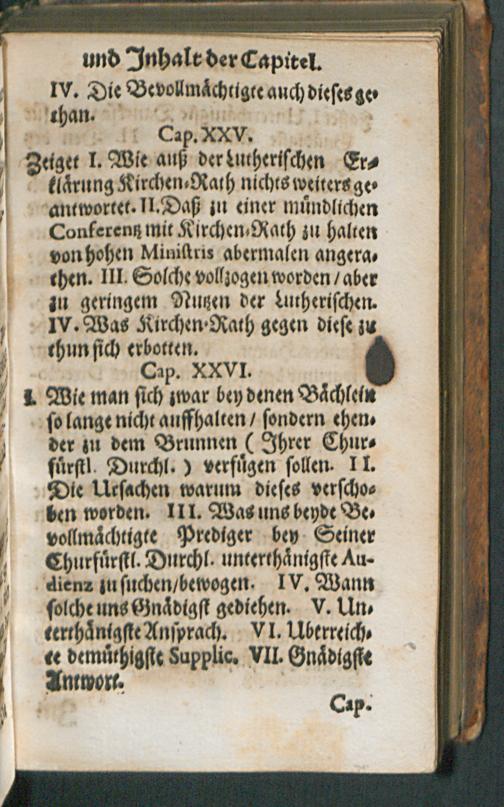 und Inhalt der Capitel.
IV. Die Bevollmächtigte auch dieses ge-
than.
Cap. XXV.
Zeiget I. Wie auß der Lutherischen Er-
klärung Kirchen-Rath nichts weiters ge-
antwortet. II. Daß zu einer mündlichen
Conferentz mit Kirchen-Rath zu halten
von hohen Ministris abermalen angera-
then. III. Solche vollzogen worden / aber
zu geringem Nutzen der Lutherischen.
IV. Was Kirchen-Rath gegen diese zu
thun sich erbotten.
Cap. XXVI.
I. Wie man sich zwar bey denen Bächlein
so lange nicht auffhalten / sondern ehen-
der zu dem Brunnen ( Ihrer Chur-
fürstl. Durchl. ) verfügen sollen. II.
Die Ursachen warum dieses verscho-
ben worden. III. Was uns beyde Be-
vollmächtigte Prediger bey Seiner
Churfürstl. Durchl. unterthänigste Au-
dienz zu suchen / bewogen. IV. Wann
solche uns Gnädigst gediehen. V. Un-
terthänigste Ansprach. VI. Uberreich-
te demüthigste Supplic. VII. Gnädigste
Antwort.
Cap.